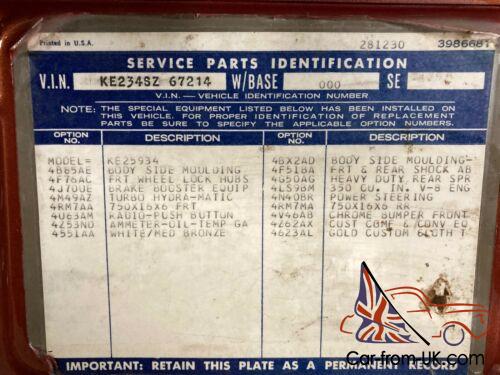 Printed in U.S.A. 281230 3986681
SERVICE PARTS IDENTIFICATION
V.I.N. KE234SZ 67214 W/BASE 000 SE
V.I.N. – VEHICLE IDENTIFICATION NUMBER
NOTE: THE SPECIAL EQUIPMENT LISTED BELOW HAS BEEN INSTALLED ON
THIS VEHICLE. FOR PROPER IDENTIFICATION OF REPLACEMENT
PARTS BE SURE TO SPECIFY THE APPLICABLE OPTION NUMBERS.
OPTION NO. DESCRIPTION OPTION NO. DESCRIPTION
MODEL= KE25934 4BX2AD BODY SIDE MOULDING-
4B85AE BODY SIDE MOULDING 4F51BA FRT & REAR SHOCK AB
4F76AC FRT WHEEL LOCK HUBS 4G50AG HEAVY DUTY REAR SPR
4J70UE BRAKE BOOSTER EQUIP 4LS9BM 350 CU. IN. V-8 ENG
4M49AZ TURBO HYDRA-MATIC 4N40BR POWER STEERING
4RM7AA 750X16X6 FRT 4RM7MA 750X16X6 RR
4U63AM RADIO-PUSH BUTTON 4V46AB CHROME BUMPER FRONT
4Z53ND AMMETER-OIL-TEMP GA 4Z62AX CUST COMF & CONV EQ
4551AA WHITE/MED BRONZE 4623AL GOLD CUSTOM CLOTH T
Car-from-UK.com
IMPORTANT: RETAIN THIS PLATE AS A PERMANENT RECORD